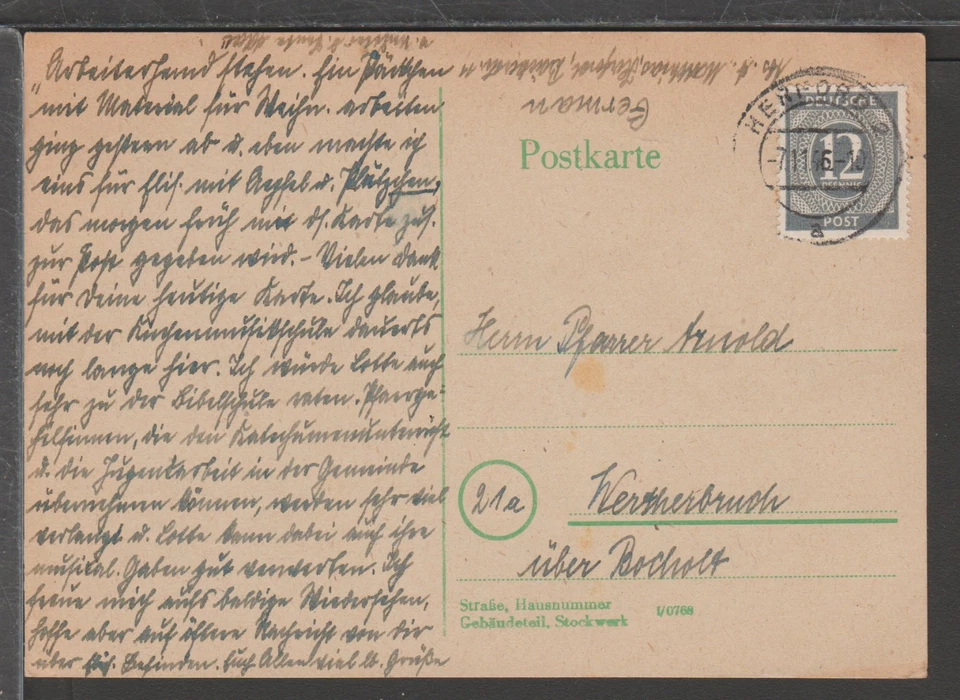 Arbeiterhemd stehen. Ein Päckchen
mit Material für Weihn. arbeiten
ging gestern ab u. eben machte ich
eins für Elis. mit Aepfel u. Plätzchen,
das morgen früh mit ds. Karte zus.
zur Post gegeben wird. - Vielen Dank
für Deine heutige Karte. Ich glaube,
mit der Kirchenmusikschule dauerts
noch lange hier. Ich würde Lotte auch
sehr zu der Bibelschule raten. Pfarrge-
hilfinnen, die den Katechumenunterricht
u. die Jugendarbeit in der Gemeinde
übernehmen können, werden sehr viel
verlangt u. Lotte kann dabei auch ihre
musikal. Gaben gut verwerten. Ich
freue mich aufs baldige Wiedersehen,
hoffe aber auf öftere Nachricht von Dir
über Elis. Befinden. Euch Allen viel lb. Grüße
German
Postkarte
HERFORD
-7.11.46.-10
a
DEUTSCHE
12
PFENNIG
POST
Herrn Pfarrer Arnold
21a
Wertherbruch
über Bocholt
Straße, Hausnummer
Gebäudeteil, Stockwerk
I/0768